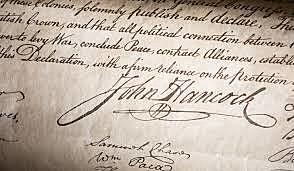 these Colonies, solemnly publish and declare, That
British Crown, and that all political connection between
to levy War, conclude Peace, contract Alliances, establ
this Declaration, with a firm reliance on the protection
John Hancock
Samuel Chase
Wm Paca